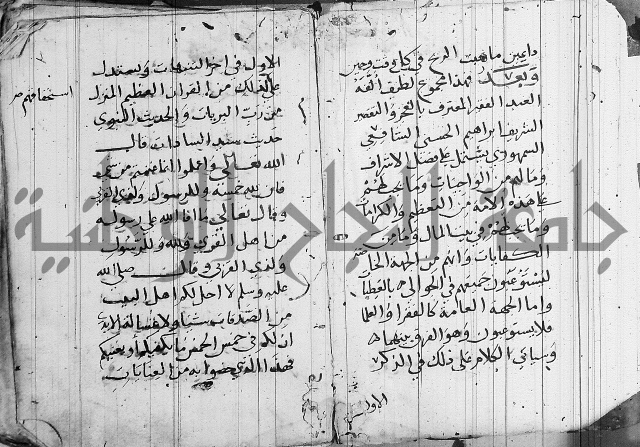 دايمين ما هبت الريح في كل وقت وحين
وبعد فهذا مجموع لطيف الفه
العبد الفقير المعترف بالعجز والتقصير
الشريف ابراهيم الحسني الشافعي
السمهودي يشتمل على فضل الاشراف
وما لهم من الواجبات وما يجب لهم
على هذه الامة من التعظيم والاكرام
وما يستحقون في بيت المال وما من
الكفايات وانهم من الجهة الخاصة
يستوعبون جميعهم في الحوالي بالعطية
واما الجهة العامة كالفقرا والعلما
فلا يستوعبون وهو الفرق بينهما
وسياتي الكلام على ذلك في الذكر
الاول
الاول في اخر التنبيهات ويستدل
على ذلك من القران العظيم المنزل
من رب البريات والحديث النبوي
حديث سيد السادات قال
الله تعالى واعلموا انما غنمتم من شي
فان لله خمسه وللرسول ولذي القربى
وقال تعالى ما افا الله على رسوله
من اهل القرى فلله وللرسول
ولذي القربى وقال صلى الله
عليه وسلم لا احل لكم اهل البيت
من الصدقات شيئا ولا غسالة الايدي
ان لكم في خمس الخمس ما يكفيكم او يغنيكم
فهذا الذي خصوا به من العنايات
استحقاقهم
جامعة النجاح الوطنية